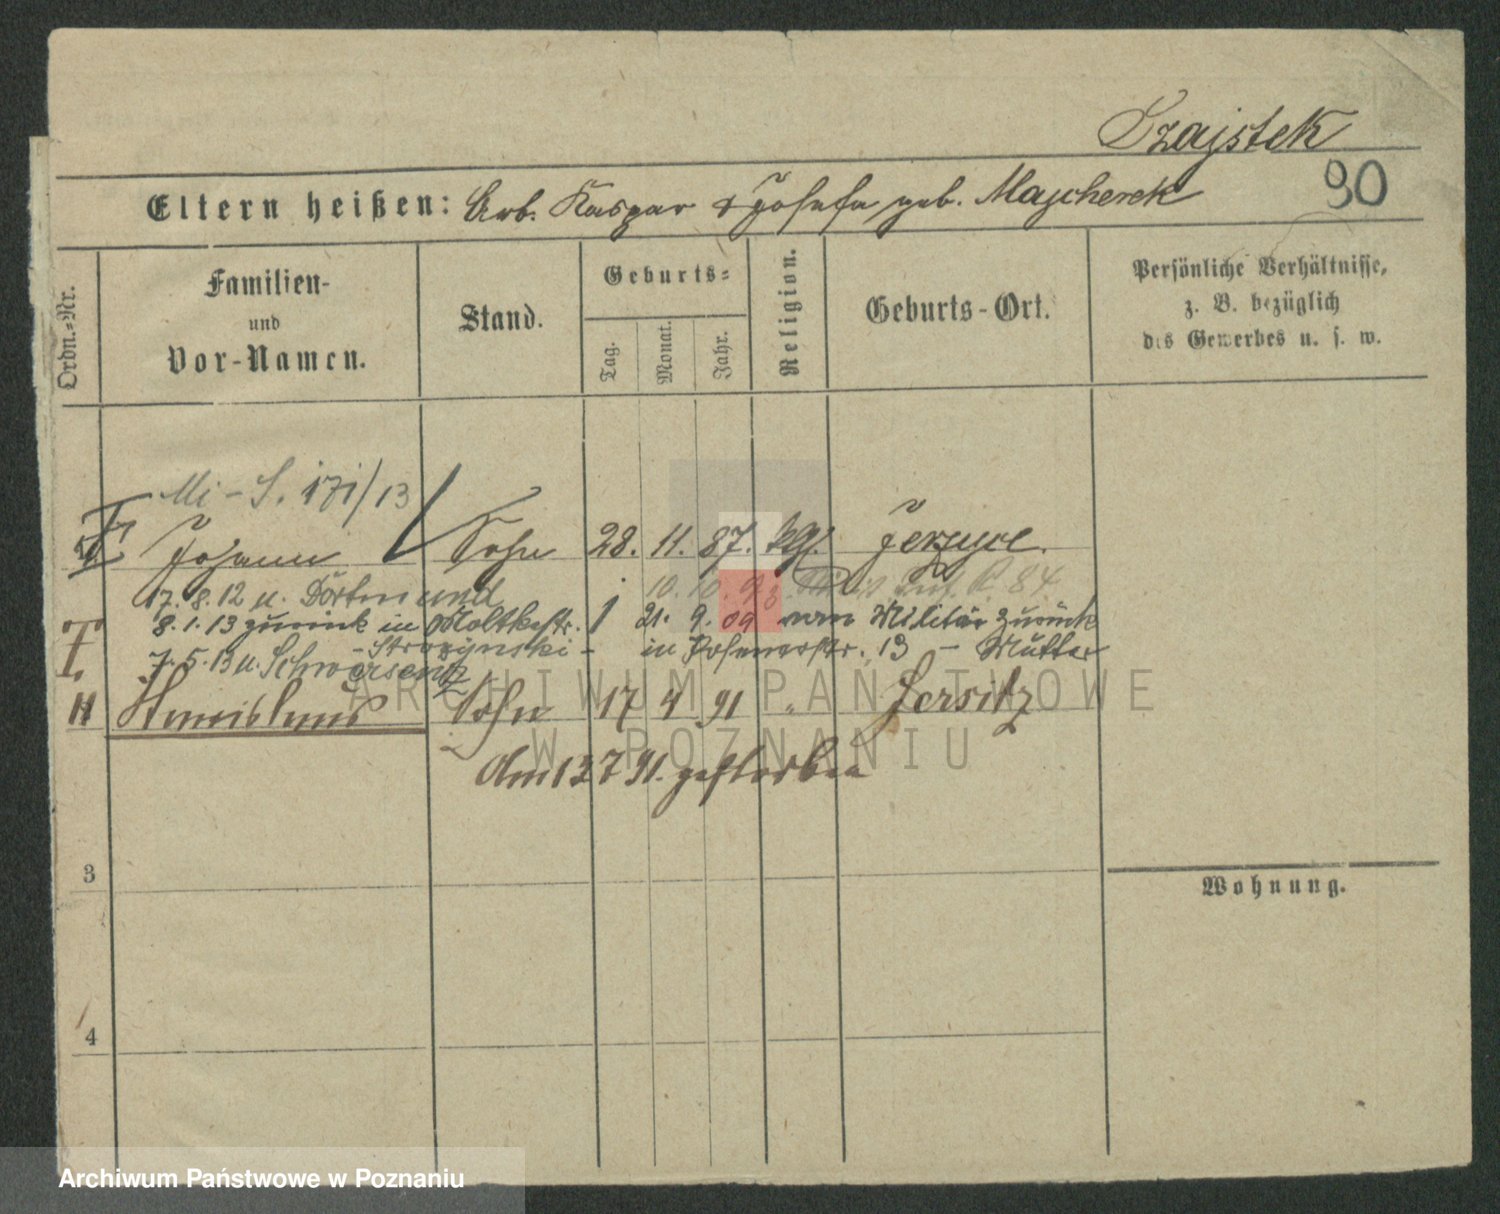 Szajstek
90
Eltern heißen: Arb. Kaspar & Josefa geb. Majcherek
Ordn.-Nr.
Familien-
und
Vor-Namen.
Stand.
Geburts-
Tag.
Monat.
Jahr.
Religion.
Geburts-Ort.
Persönliche Verhältnisse,
z. B. bezüglich
des Gewerbes u. s. w.
Mi - S. 171/13
Johann Sohn 28. 11. 87. kg. Jerzyce.
17. 8. 12 u. Dortmund
10. 10. 93 R. 84
8. 1. 13 zurück in Moltkestr. 1 21. 9. 09 vom Militär zurück
- Strozynski - in Posenerstr. 13 - Mutter
7. 5. 13 u. Schwersenz
Stanislaus Sohn 17 4 91 " Jersitz
Am 13 7 91. gestorben
3
Wohnung.
4
ARCHIWUM PAŃSTWOWE
W POZNANIU
Archiwum Państwowe w Poznaniu